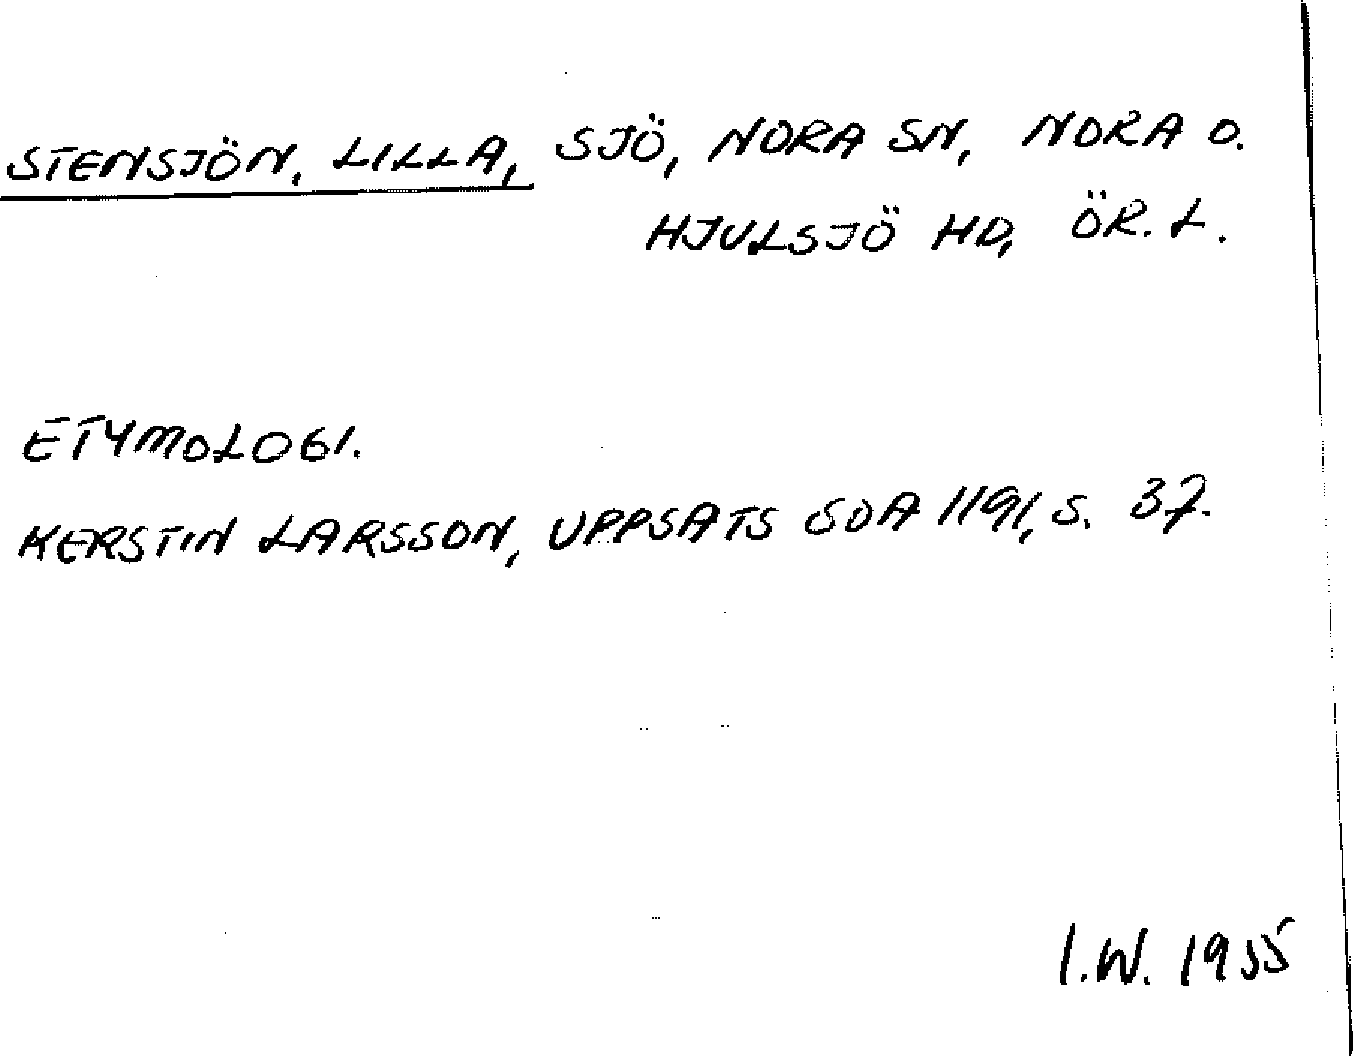 STENSJÖN, LILLA, SJÖ, NORA SN, NORA O.
HJULSJÖ HD, ÖR. L.
ETYMOLOGI.
KERSTIN LARSSON, UPPSATS SOA 1191, S. 37.
I.W. 1955